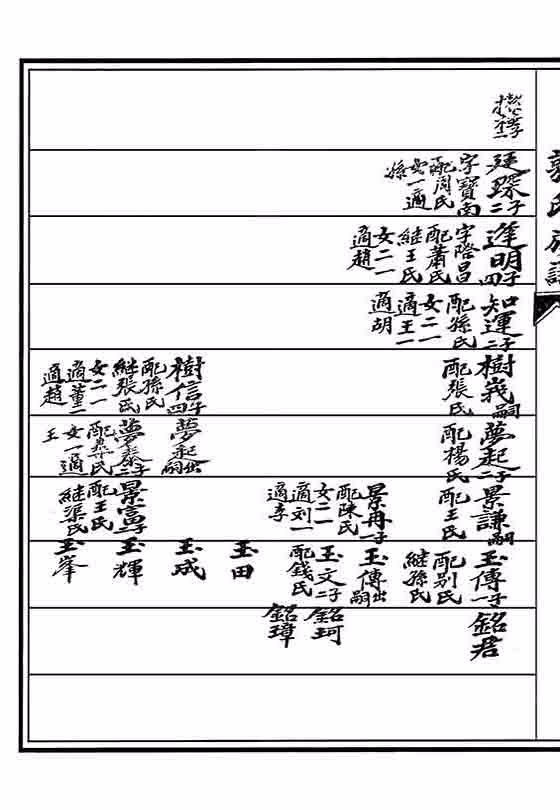 廷琛二子
字寶南
配周氏
女一適
孫
逢明四子
字啓昌
配蕭氏
継王氏
女二一
適趙
知運二子
配孫氏
女二一
適王一
適胡
樹義嗣
配張氏
樹信四子
配孫氏
継張氏
女二一
適董一
適趙
夢起二子
配楊氏
夢起出嗣
夢泰三子
女一適
王
景謙嗣
配王氏
景冉一子
配陳氏
女二一
適刘一
適李
景富子
配王氏
継渠氏
玉傳一子
配别氏
継孫氏
玉傳出嗣
玉文二子
配錢氏
玉田
玉成
玉輝
玉峯
銘君
銘珂
銘璋